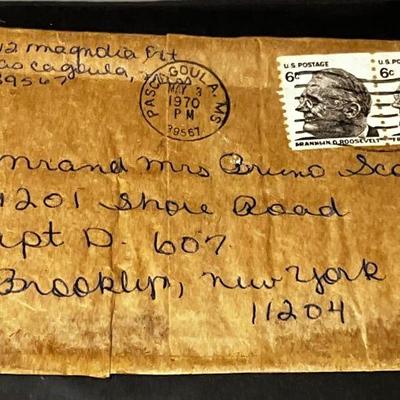 12 Magnolia
Pascagoula,
39567
PASCAGOULA, MS
MAY 3
1970
PM
39567
U.S. POSTAGE
6¢
FRANKLIN D. ROOSEVELT
U.S. POSTAGE
6¢
Mr and Mrs Bruno
1201 Shore Road
Apt D. 607
Brooklyn, New York
11204